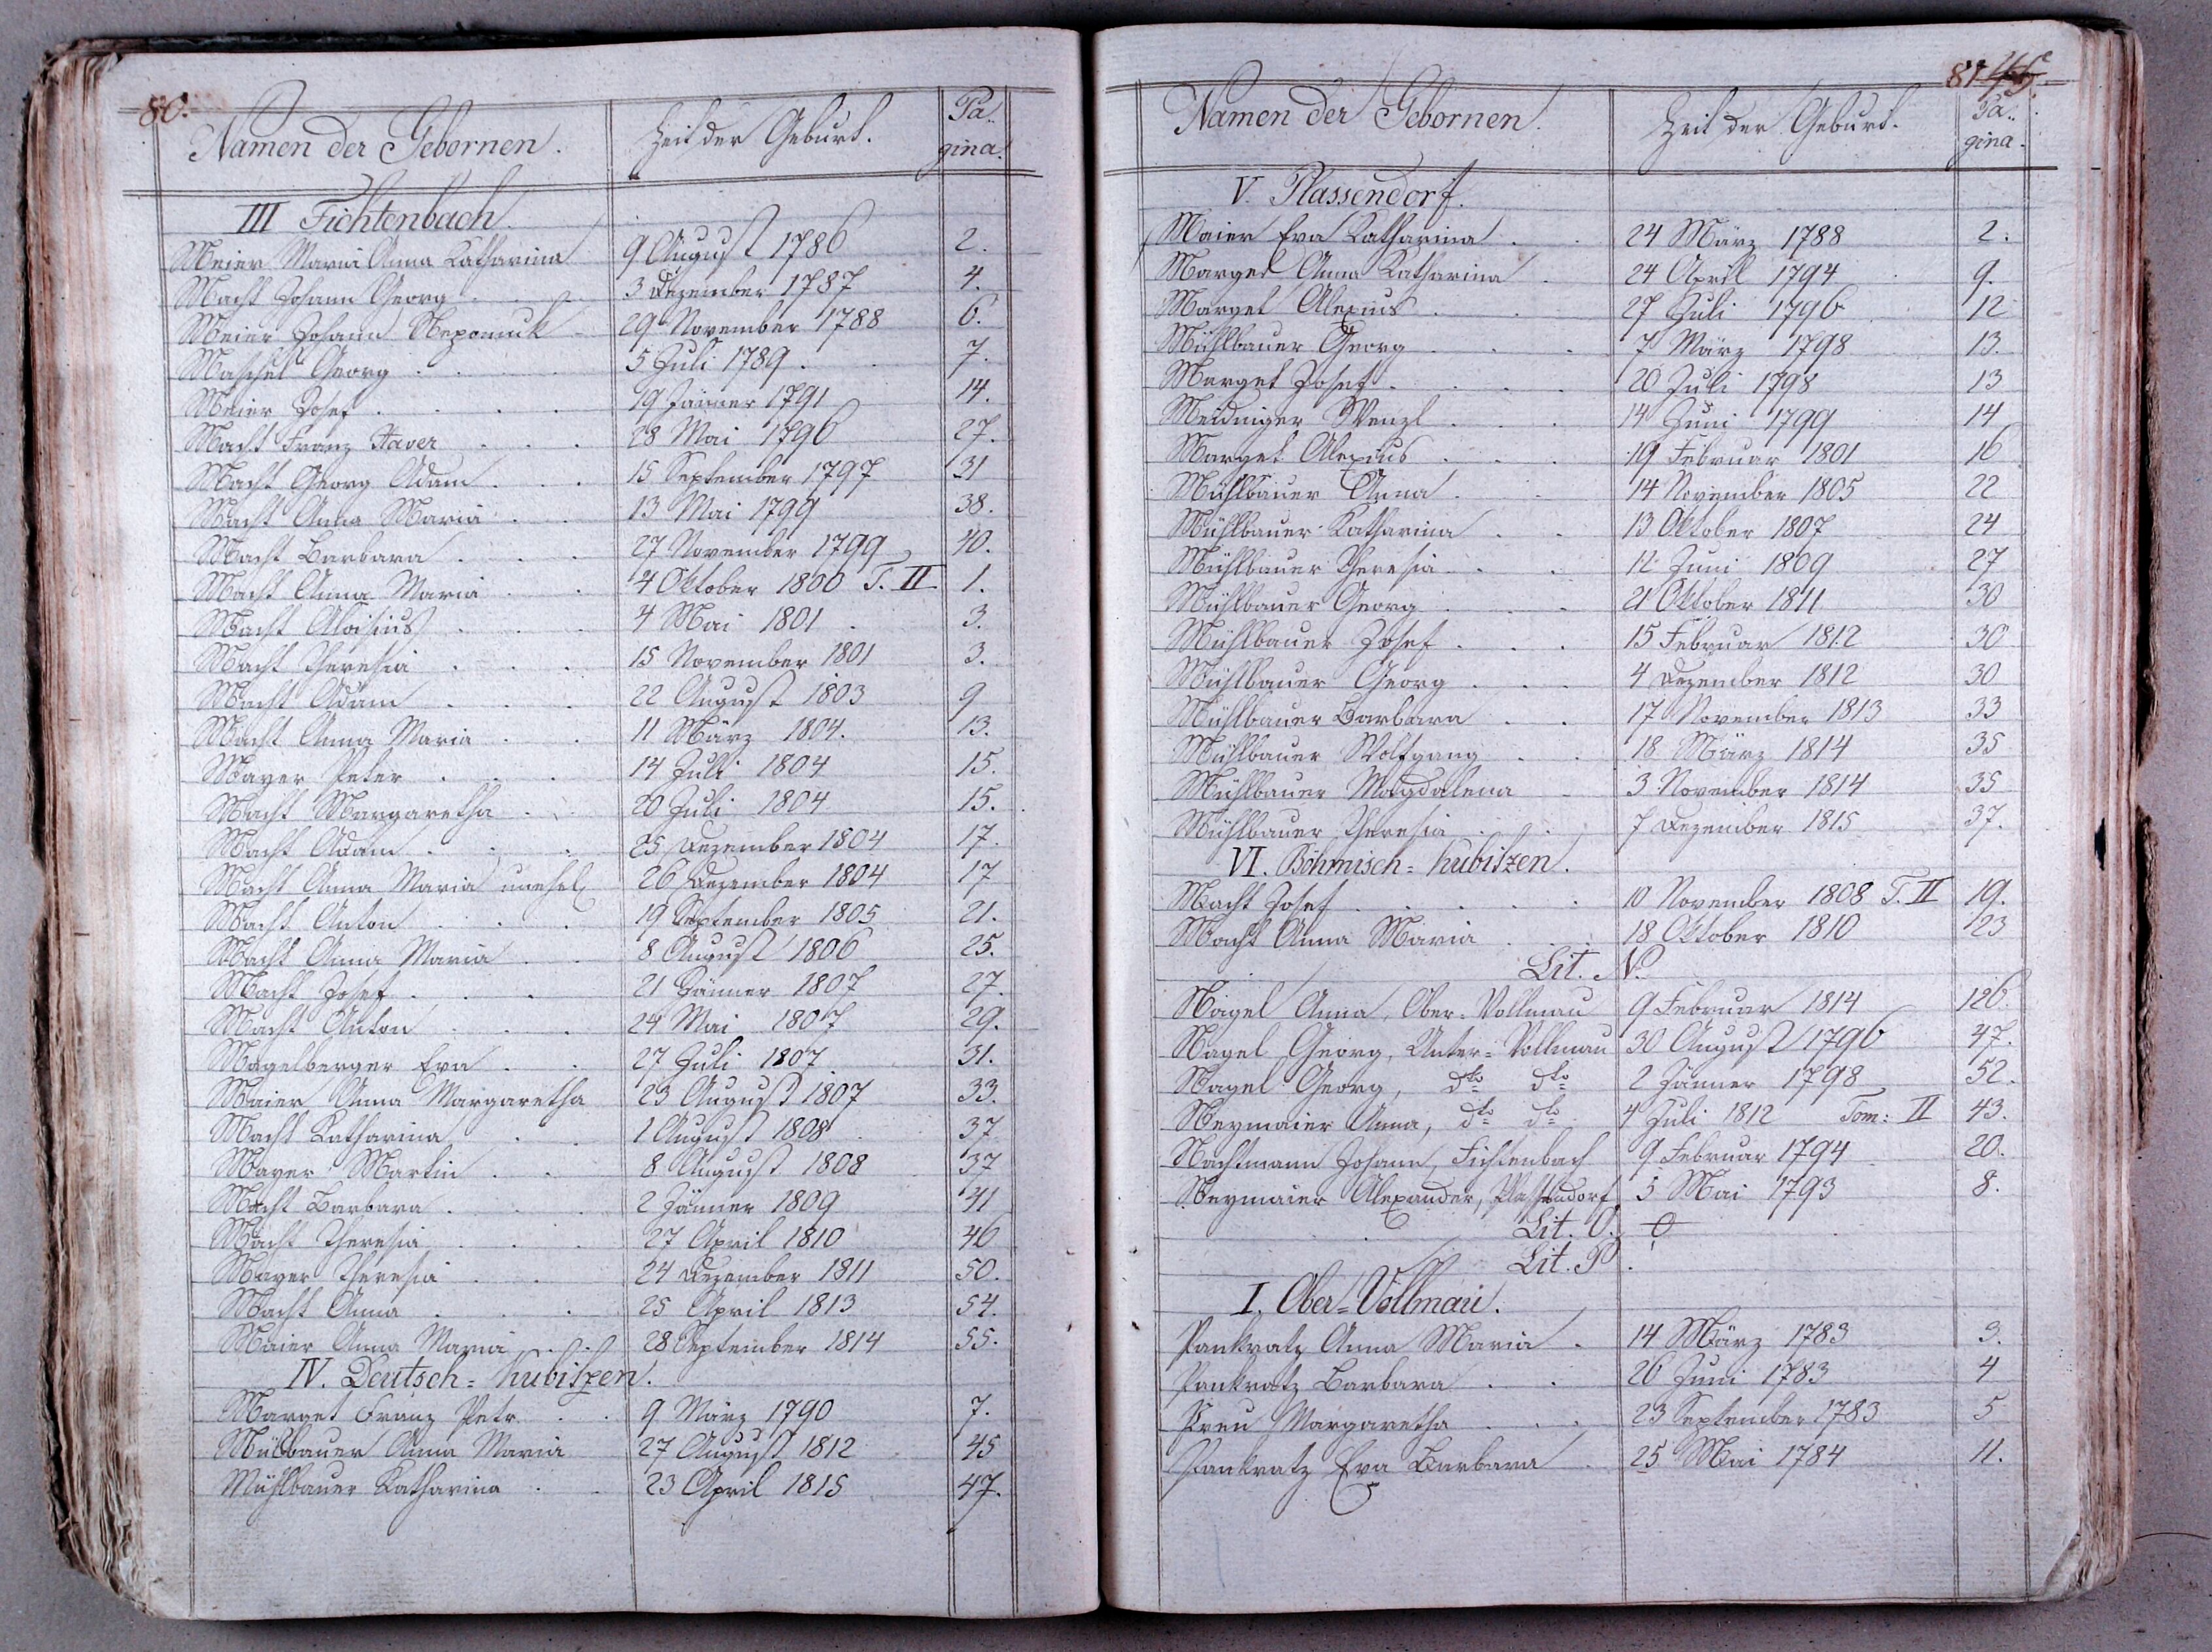 80.
Namen der Gebornen. Zeit der Geburt. Pa..
gina.
III Fichtenbach.
Meier Maria Anna Katharina 9 August 1786 2.
Macht Johann Georg 3 Dezember 1787 4.
Meier Johann Nepomuk 29 November 1788 6.
Maschel Georg 5 Juli 1789 7.
Meier Josef 19 Jänner 1791 14.
Macht Franz Xaver 28 Mai 1796 27.
Macht Georg Adam 15 September 1797 31
Macht Anna Maria 13 Mai 1799 38.
Macht Barbara 27 November 1799 40.
Macht Anna Maria 4 Oktober 1800 T. II 1.
Macht Aloisius 4 Mai 1801 3.
Macht Theresia 15 November 1801 3.
Macht Adam 22 August 1803 9
Macht Anna Maria 11 März 1804. 13.
Mayer Peter 14 Juli 1804 15.
Macht Margaretha 20 Juli 1804 15.
Macht Adam 25 Dezember 1804 17.
Macht Anna Maria unehel. 26 Dezember 1804 17
Macht Anton 19 September 1805 21.
Macht Anna Maria 8 August 1806 25.
Macht Josef 21 Jänner 1807 27.
Macht Anton 24 Mai 1807 29.
Magelberger Eva 27 Juli 1807 31.
Maier Anna Margaretha 23 August 1807 33.
Macht Katharina 1 August 1808 37
Mayer Martin 8 August 1808 37
Macht Barbara 2 Jänner 1809 41
Macht Theresia 27 April 1810 46
Mayer Theresia 24 Dezember 1811 50.
Macht Anna 25 April 1813 54.
Maier Anna Maria 28 September 1814 55.
IV. Deutsch-Kubitzen.
Marget Franz Petr. 9 März 1790 7.
Mülbauer Anna Maria 27 August 1812 45
Mühlbauer Katharina 23 April 1815 47.
81
Namen der Gebornen. Zeit der Geburt. Pa..
gina.
V. Plassendorf.
Maier Eva Katharina 24 März 1788 2.
Marget Anna Katharina 24 April 1794 9.
Marget Alexius 27 Juli 1796 12
Mühlbauer Georg 7 März 1798 13.
Marget Josef 20 Juli 1798 13
Meidinger Wenzl 14 Juni 1799 14
Marget Alexius 19 Februar 1801 16
Mühlbauer Anna 14 November 1805 22
Mühlbauer Katharina 13 Oktober 1807 24
Mühlbauer Theresia 12 Juni 1809 27
Mühlbauer Georg 21 Oktober 1811 30
Mühlbauer Josef 15 Februar 1812 30
Mühlbauer Georg 4 Dezember 1812 30
Mühlbauer Barbara 17 November 1813 33
Mühlbauer Wolfgang 18 März 1814 35
Mühlbauer Magdalena 3 November 1814 35
Mühlbauer Theresia 7 Dezember 1815 37.
VI. Böhmisch-Kubitzen.
Macht Josef 10 November 1808 T. II 19.
Macht Anna Maria 18 Oktober 1810 23
Lit. N.
Nagel Anna, Ober-Vollmau 9 Februar 1814 126.
Nagel Georg, Unter-Vollmau 30 August 1796 47.
Nagel Georg, dto dto 2 Jänner 1798 52.
Neymaier Anna, dto dto 4 Juli 1812 Tom: II 43.
Nachtmann Johann, Fichtenbach 9 Februar 1794 20.
Neymaier Alexander, Plassendorf 5 Mai 1793 8.
Lit. O. 0
Lit. P.
I. Ober-Vollmau.
Pankratz Anna Maria 14 März 1783 3.
Pankratz Barbara 26 Juni 1783 4
Preu Margaretha 23 September 1783 5
Pankratz Eva Barbara 25 Mai 1784 11.